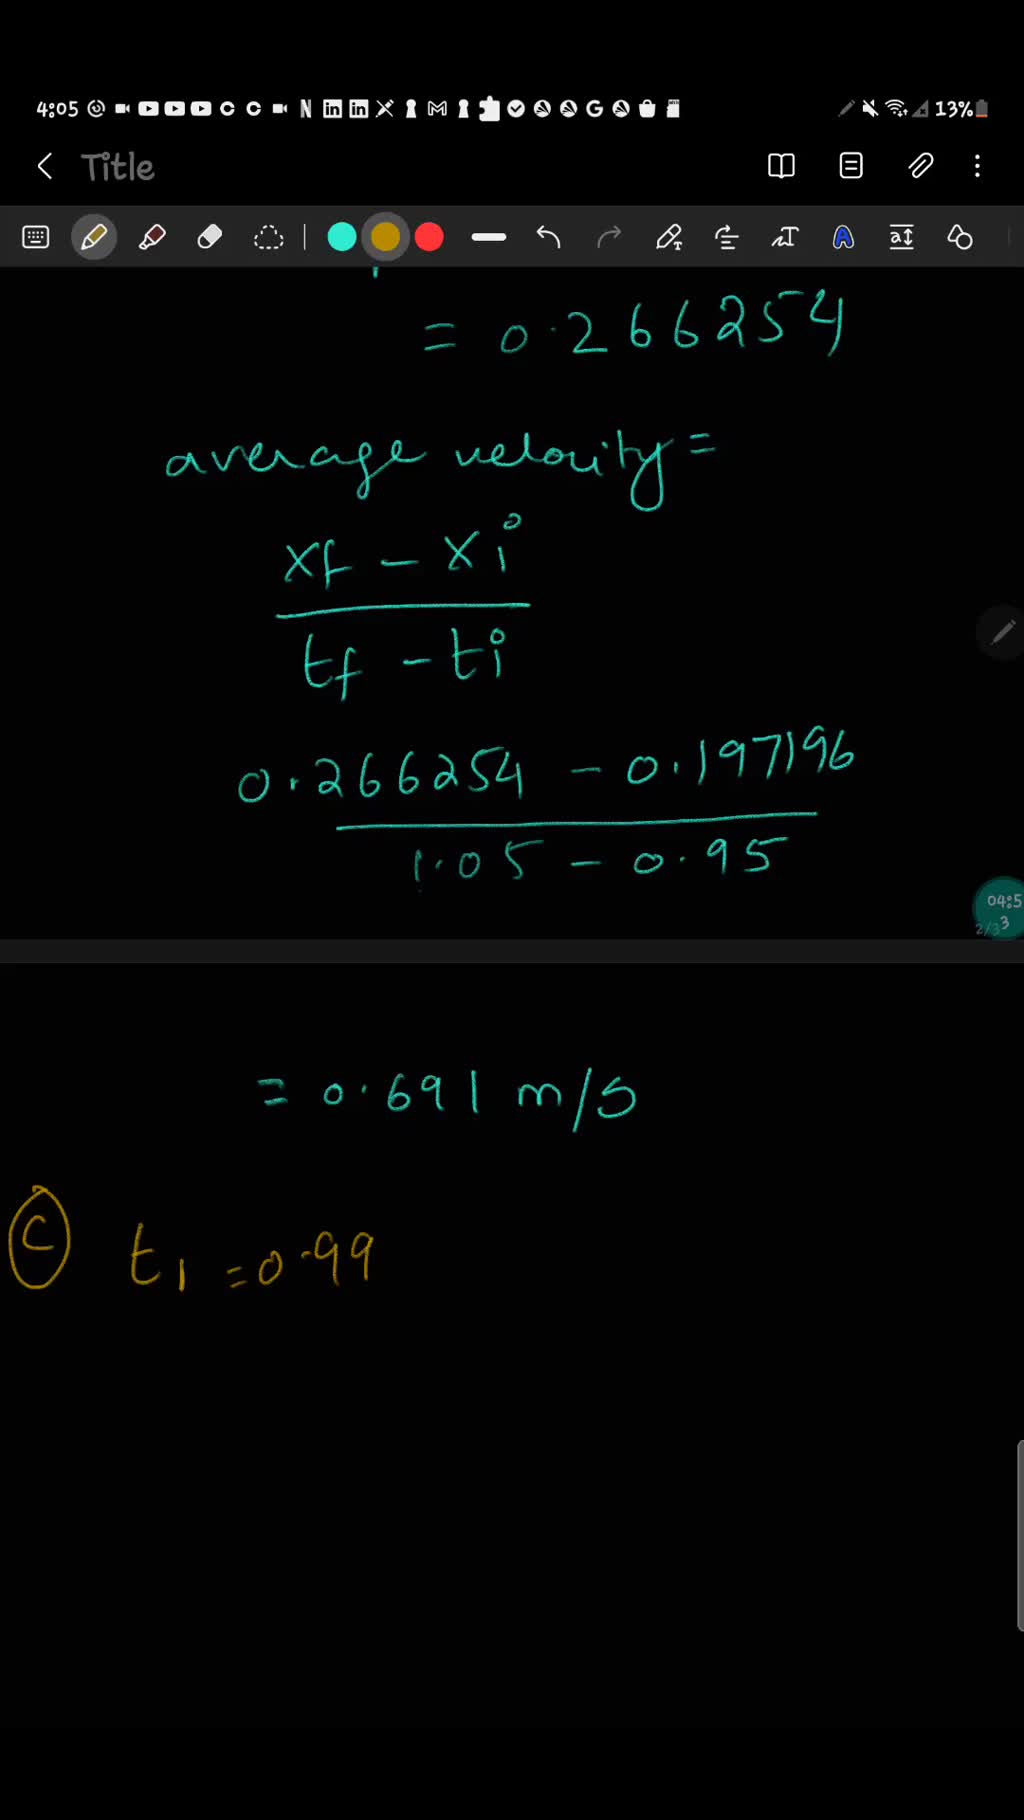 4:05 13%
Title
= 0.266254
average velocity =
xf - xi
tf - ti
0.266254 - 0.197196
1.05 - 0.95
04:5
3
2/3
= 0.691 m/s
C t1 = 0.99